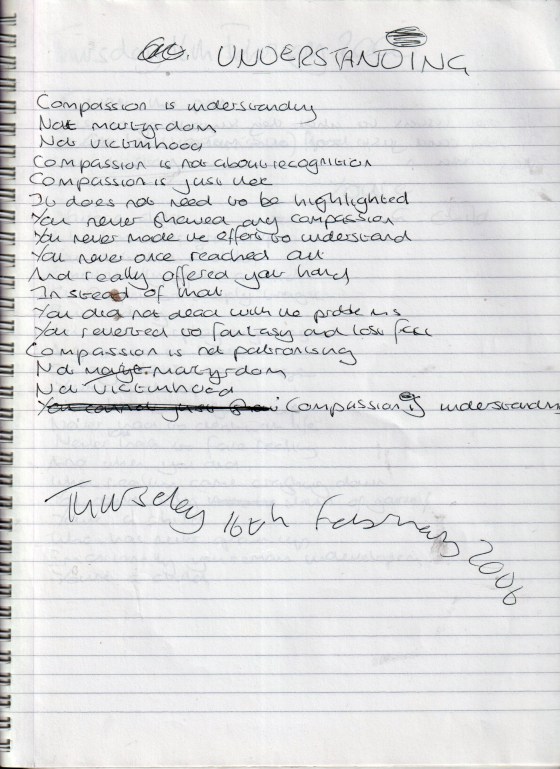 UNDERSTANDING
Compassion is understanding
Not martyrdom
Not victimhood
Compassion is not about recognition
Compassion is just
It does not need to be highlighted
You never showed any compassion
You never made the effort to understand
You never once reached out
And really offered your hand
Instead of that
You did not deal with the problems
You reverted to fantasy and lost feel
Compassion is not patronising
Not martyrdom
Not victimhood
Compassion is understanding
Thursday 16th February 2006